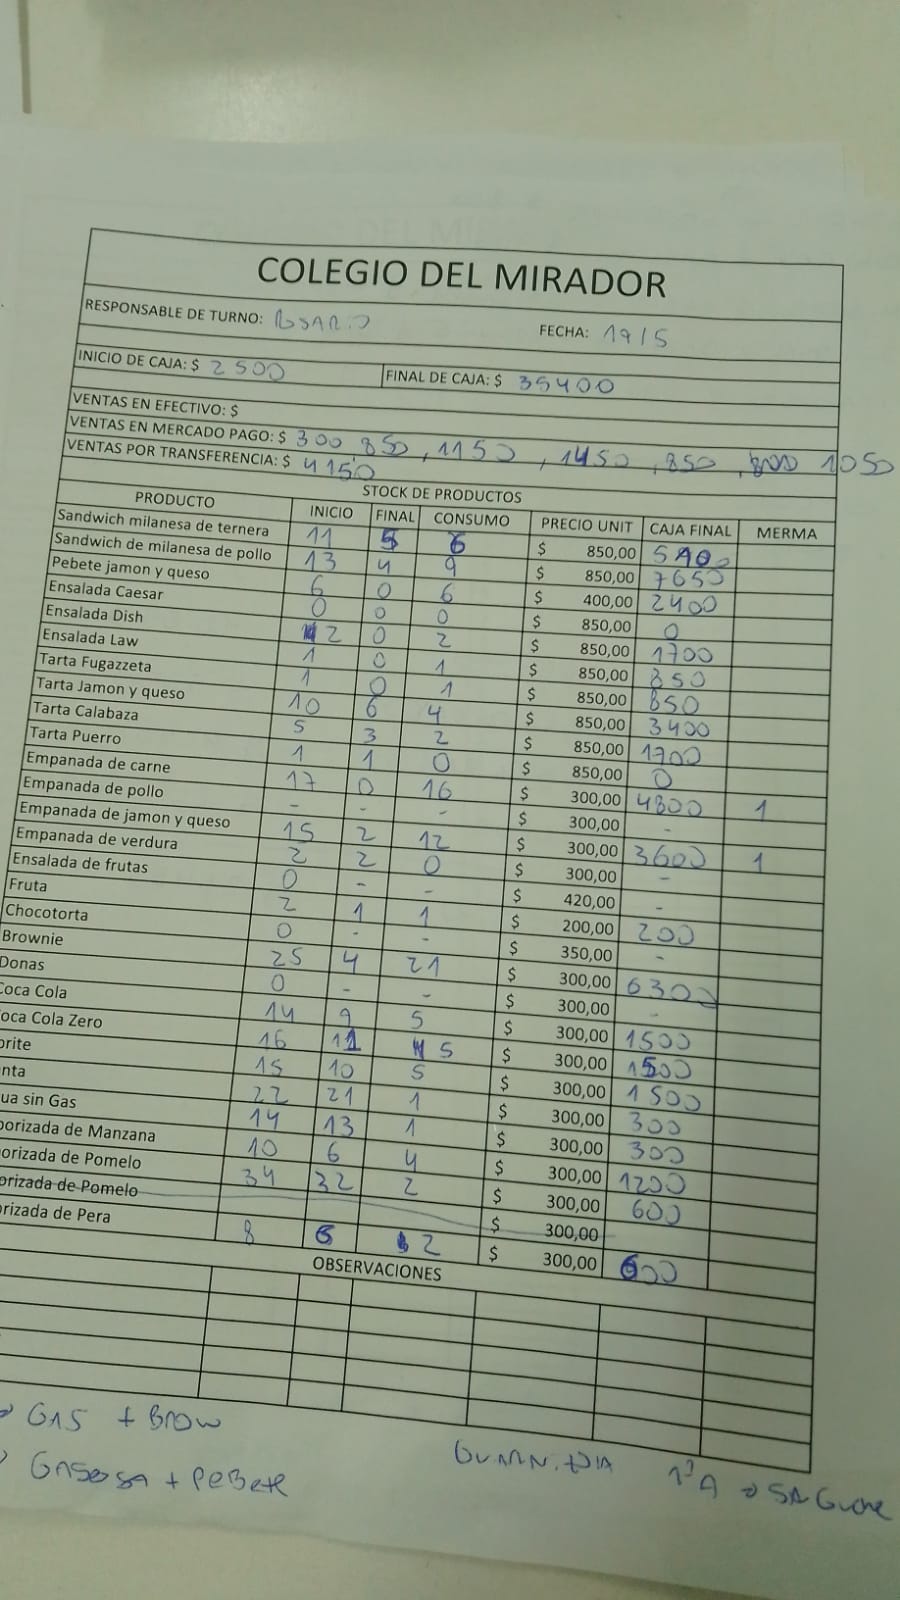 COLEGIO DEL MIRADOR
RESPONSABLE DE TURNO: ROSARIO FECHA: 19/5
INICIO DE CAJA: $ 2500 FINAL DE CAJA: $ 35400
VENTAS EN EFECTIVO: $
VENTAS EN MERCADO PAGO: $ 300, 850, 1150, 1450, 850, 800 1050
VENTAS POR TRANSFERENCIA: $ 4150
STOCK DE PRODUCTOS
PRODUCTO INICIO FINAL CONSUMO PRECIO UNIT CAJA FINAL MERMA
Sandwich milanesa de ternera 11 5 6 $ 850,00 5100
Sandwich de milanesa de pollo 13 4 9 $ 850,00 7650
Pebete jamon y queso 6 0 6 $ 400,00 2400
Ensalada Caesar 0 0 0 $ 850,00 0
Ensalada Dish 2 0 2 $ 850,00 1700
Ensalada Law 1 0 1 $ 850,00 850
Tarta Fugazzeta 1 0 1 $ 850,00 850
Tarta Jamon y queso 10 6 4 $ 850,00 3400
Tarta Calabaza 5 3 2 $ 850,00 1700
Tarta Puerro 1 1 0 $ 850,00 0
Empanada de carne 17 0 16 $ 300,00 4800 1
Empanada de pollo - - - $ 300,00 -
Empanada de jamon y queso 15 2 12 $ 300,00 3600 1
Empanada de verdura 2 2 0 $ 300,00 -
Ensalada de frutas 0 - - $ 420,00 -
Fruta 2 1 1 $ 200,00 200
Chocotorta 0 - - $ 350,00 -
Brownie 25 4 21 $ 300,00 6300
Donas 0 - - $ 300,00 -
Coca Cola 14 9 5 $ 300,00 1500
oca Cola Zero 16 11 5 $ 300,00 1500
prite 15 10 5 $ 300,00 1500
nta 22 21 1 $ 300,00 300
ua sin Gas 14 13 1 $ 300,00 300
borizada de Manzana 10 6 4 $ 300,00 1200
orizada de Pomelo 34 32 2 $ 300,00 600
orizada de Pomelo $ 300,00
rizada de Pera 8 6 2 $ 300,00 600
OBSERVACIONES
GAS + BROW
GASEOSA + PEBETE
1ºA → SAGUCHE